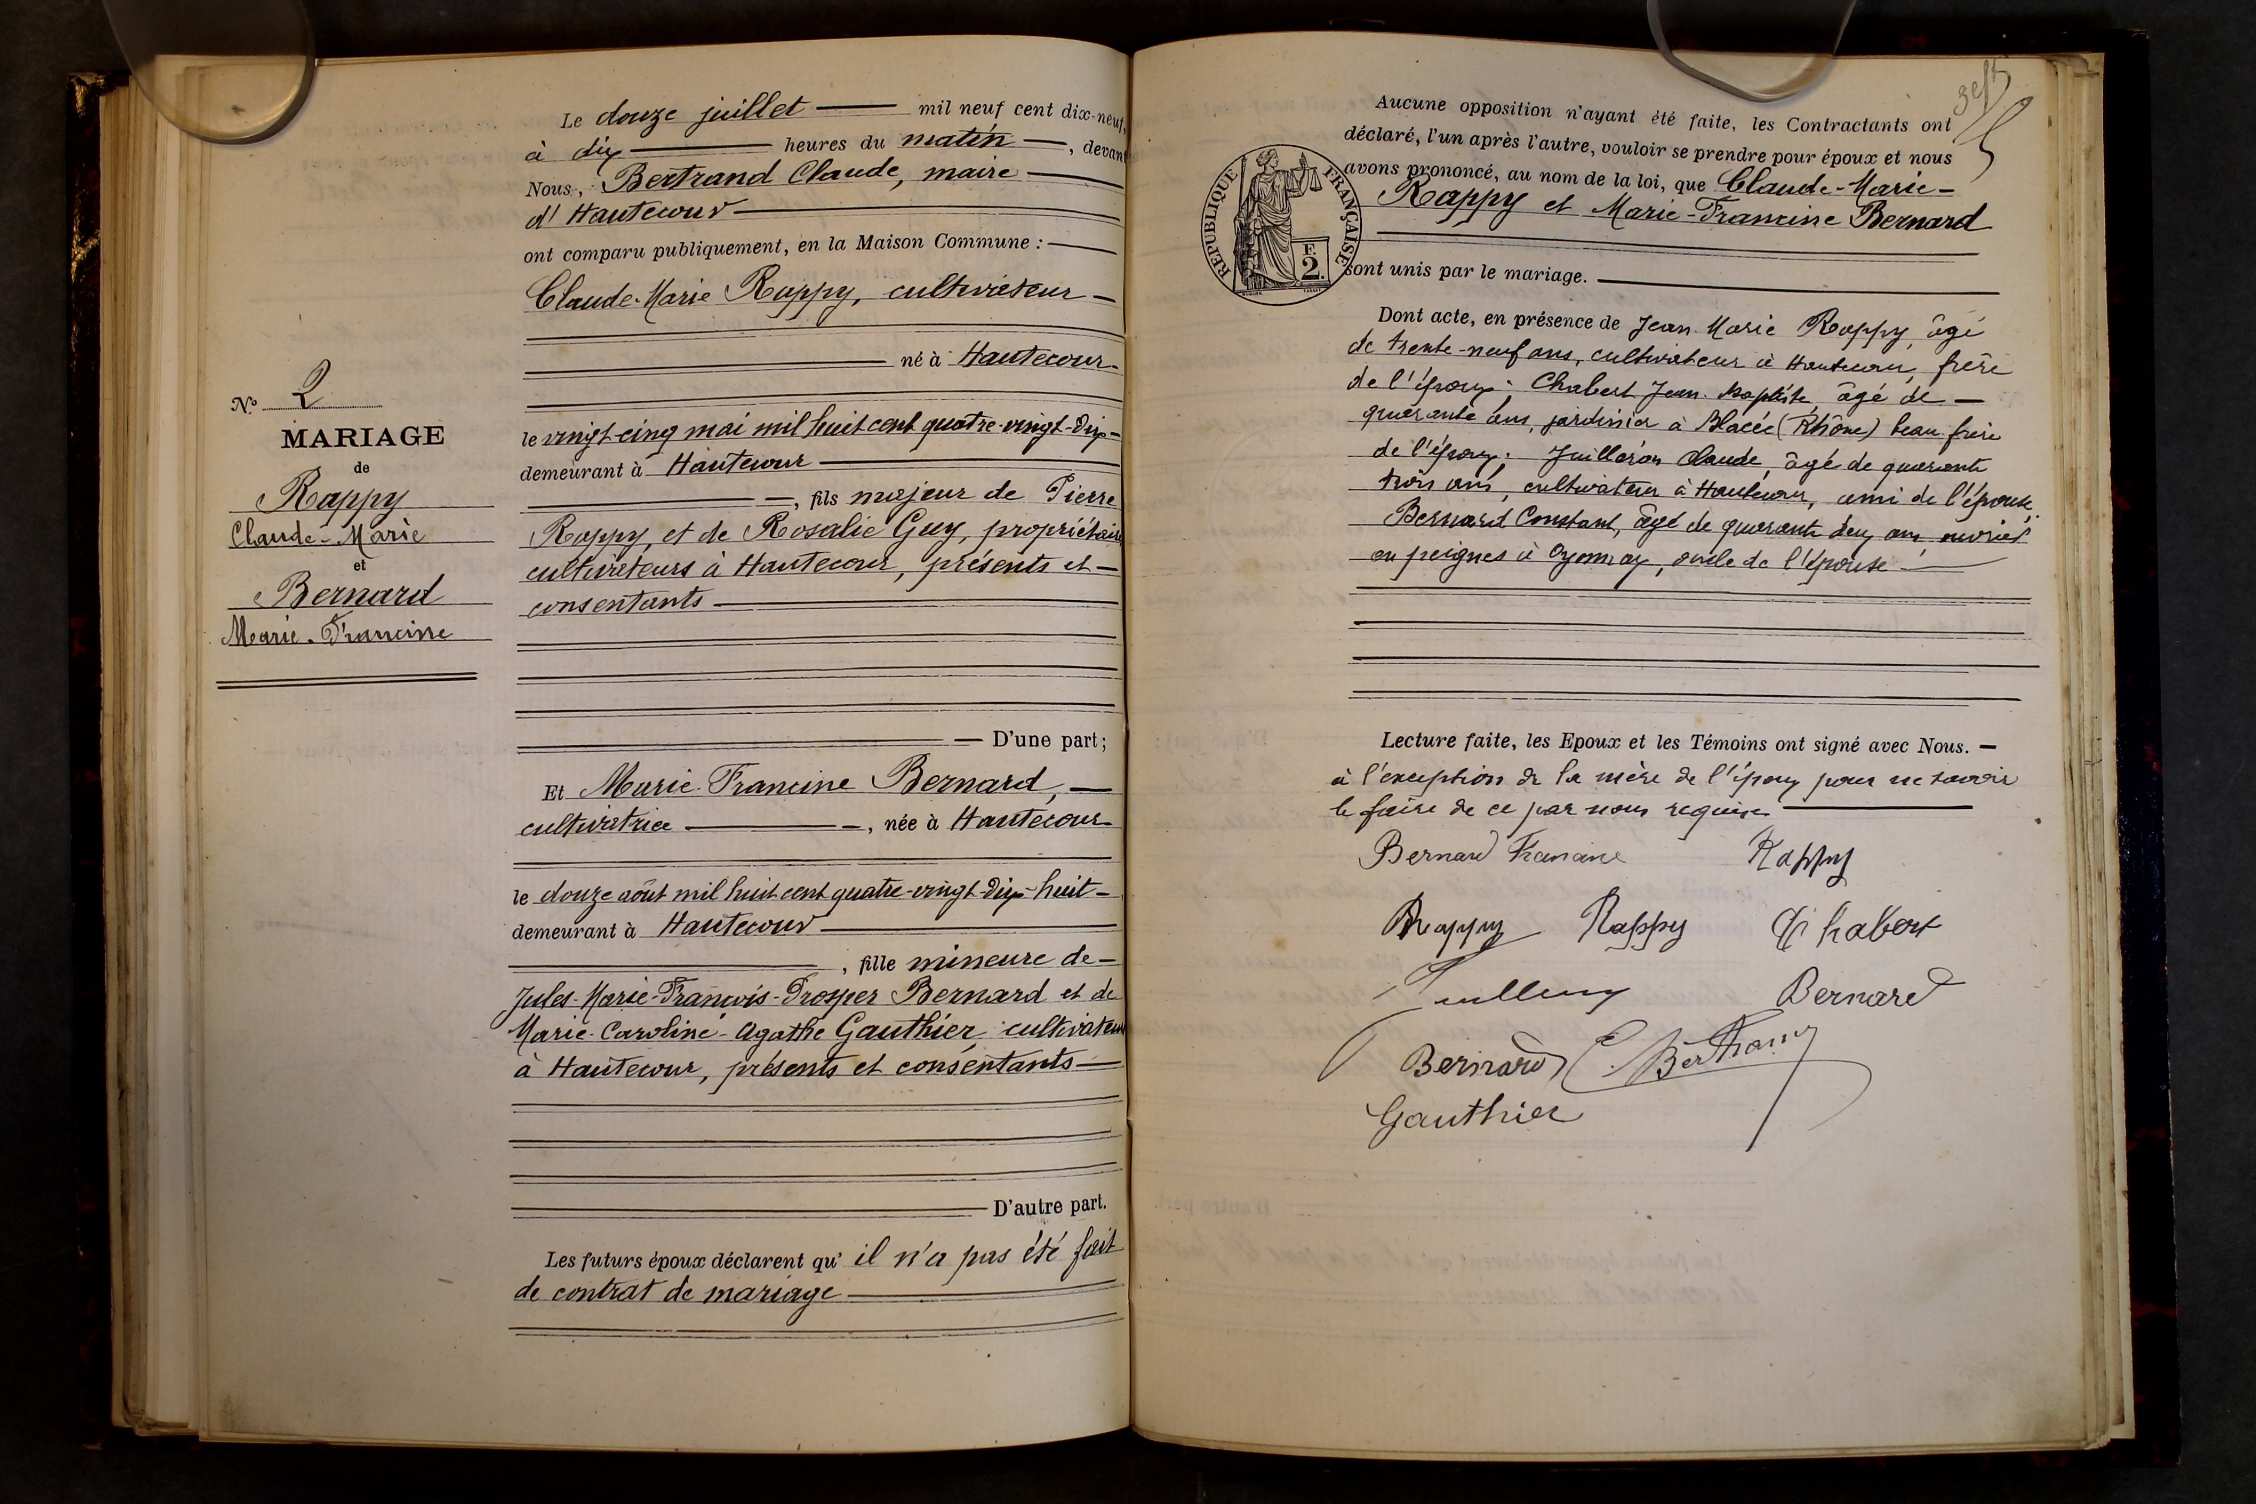 Le douze juillet mil neuf cent dix-neuf,
à dix heures du matin, devant
Nous, Bertrand Claude, maire
d'Hautecour
ont comparu publiquement, en la Maison Commune :
Claude-Marie Rappy, cultivateur
né à Hautecour
le vingt-cinq mai mil huit cent quatre-vingt-dix
demeurant à Hautecour
, fils majeur de Pierre
Rappy, et de Rosalie Guy, propriétaires
cultivateurs à Hautecour, présents et
consentants
D'une part;
Et Marie-Francine Bernard,
cultivatrice, née à Hautecour
le douze août mil huit cent quatre-vingt-dix-huit
demeurant à Hautecour
, fille mineure de
Jules-Marie-François-Prosper Bernard et de
Marie-Caroline-Agathe Gauthier, cultivateurs
à Hautecour, présents et consentants
D'autre part.
Les futurs époux déclarent qu'il n'a pas été fait
de contrat de mariage
N° 2
MARIAGE
de
Rappy
Claude-Marie
et
Bernard
Marie-Francine
Aucune opposition n'ayant été faite, les Contractants ont
déclaré, l'un après l'autre, vouloir se prendre pour époux et nous
avons prononcé, au nom de la loi, que Claude-Marie
Rappy et Marie-Francine Bernard
sont unis par le mariage.
RÉPUBLIQUE FRANÇAISE
F.
2.
Dont acte, en présence de Jean-Marie Rappy, âgé
de trente-neuf ans, cultivateur à Hautecour, frère
de l'époux; Chabert Jean-Baptiste, âgé de
quarante ans, jardinier à Blacée (Rhône) beau-frère
de l'époux; Juilleron Claude, âgé de quarante
trois ans, cultivateur à Hautecour, ami de l'épouse,
Bernard Constant, âgé de quarante deux ans, ouvrier
en peignes à Oyonnax, oncle de l'épouse
Lecture faite, les Epoux et les Témoins ont signé avec Nous.
à l'exception de la mère de l'époux pour ne savoir
le faire de ce par nous requise
Bernard Francine Rappy
Rappy Rappy Chabert
Bernard
Bernard C. Bertrand
Gauthier